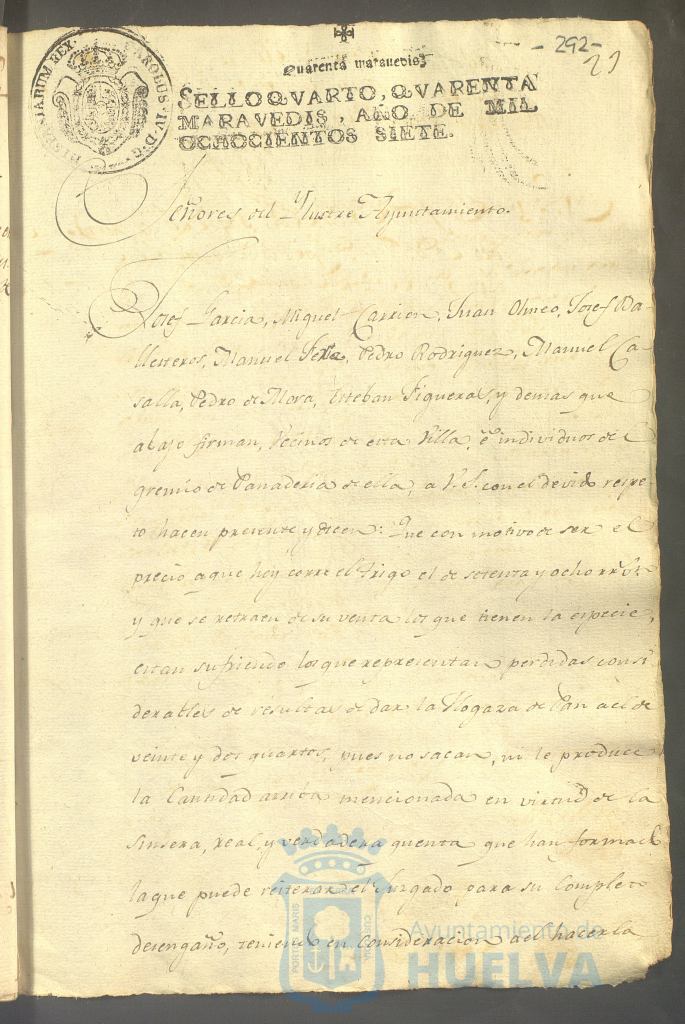 - 292 -
29
HISPANIARUM REX. CAROLUS IV D. G.
Quarenta maravedis
SELLO QVARTO, QVARENTA
MARAVEDIS, AÑO DE MIL
OCHOCIENTOS SIETE.
Señores del Ylustre Ayuntamiento.
Josef Garcia, Miguel Carrion, Juan Olmeo, Josef Ba-
llesteros, Manuel Pedro Rodriguez, Manuel Ca-
salla, Pedro de Mora, Esteban Figueras, y demas que
abajo firman, Vecinos de esta Villa, é individuos del
gremio de Panaderia de ella, a V.S. con el devido respe-
to hacen presente y dicen: Que con motivo de ser el
precio a que hoy corre el trigo el de setenta y ocho rr.s v.n
y que se retraen de su venta los que tienen la especie,
estan sufriendo los que representan perdidas consi
derables de resultas de dar la Hogaza de Pan a el de
veinte y dos quartos, pues no sacan, ni le produce
la Cantidad arriba mencionada en virtud de la
sinsera, real, y verdadera quenta que han formado
la que puede reiterar el Juzgado para su Completo
desengaño, teniendo en Consideracion a el hacerla
PORTUS MARIS
Ayuntamiento de
HUELVA